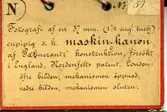 N
Fotografi af en 37 m/m (1½ eng. tum)
enpipig s. k. maskin-kanon
af Palmcrantz' konstruktion, försökt
i England. Nordenfelts patent. London.
öfre bilden, mekanismen öppnad,
nedre bilden, mekanismen sluten.